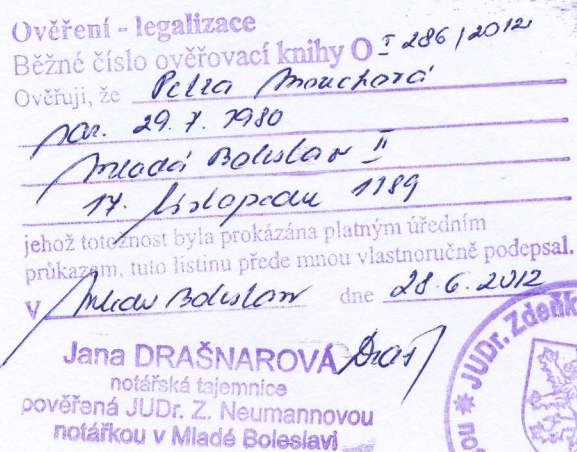 Ověření - legalizace
Běžné číslo ověřovací knihy O I 286/2012
Ověřuji, že Petra Mouchová
nar. 29. 7. 1980
Mladá Boleslav II
17. listopadu 1189
jehož totožnost byla prokázána platným úředním
průkazem, tuto listinu přede mnou vlastnoručně podepsal.
V Mladé Boleslavi dne 28.6.2012
Jana DRAŠNAROVÁ
notářská tajemnice
pověřená JUDr. Z. Neumannovou
notářkou v Mladé Boleslavi
JUDr. Zdeňk